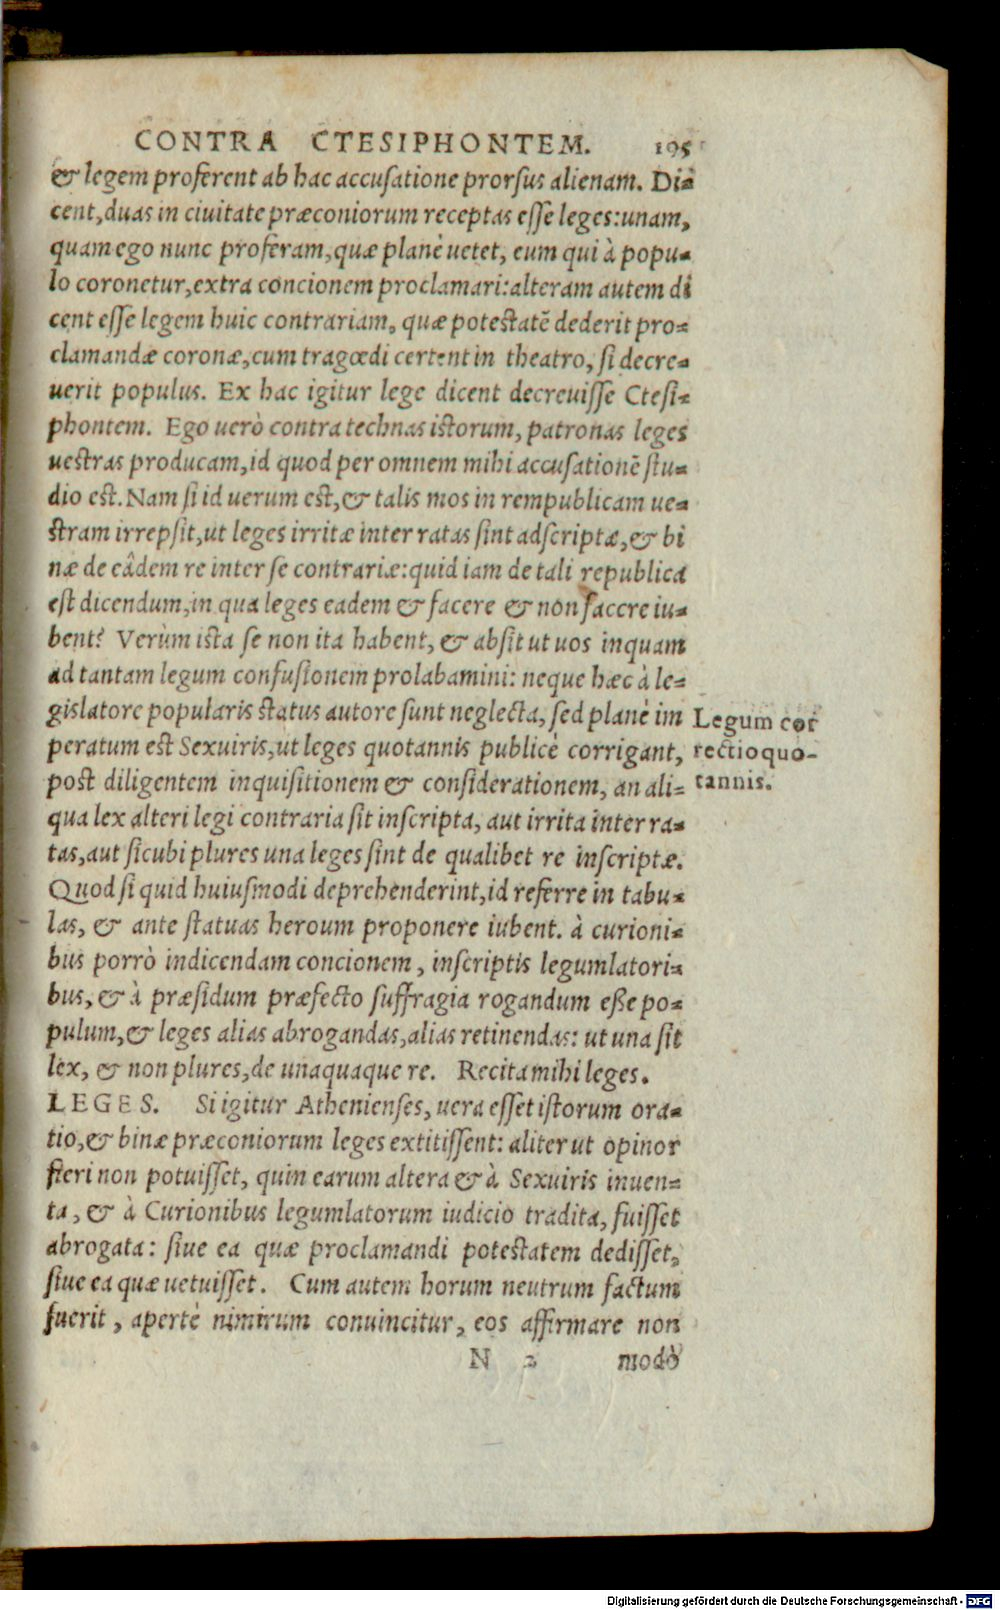 CONTRA CTESIPHONTEM. 195
& legem proferent ab hac accusatione prorsus alienam. Di=
cent, duas in ciuitate præconiorum receptas esse leges: unam,
quam ego nunc proferam, quæ planè uetet, eum qui à popu=
lo coronetur, extra concionem proclamari: alteram autem di
cent esse legem huic contrariam, quæ potestatē dederit pro=
clamandæ coronæ, cum tragœdi certent in theatro, si decre=
uerit populus. Ex hac igitur lege dicent decreuisse Ctesi=
phontem. Ego uerò contra technas istorum, patronas leges
uestras producam, id quod per omnem mihi accusationē stu=
dio est. Nam si id uerum est, & talis mos in rempublicam ue=
stram irrepsit, ut leges irritæ inter ratas sint adscriptæ, & bi
næ de eâdem re inter se contrariæ: quid iam de tali republica
est dicendum, in qua leges eadem & facere & non facere iu=
bent? Verùm ista se non ita habent, & absit ut uos inquam
ad tantam legum confusionem prolabamini: neque hæc à le=
gislatore popularis status autore sunt neglecta, sed planè im
peratum est Sexuiris, ut leges quotannis publicè corrigant,
post diligentem inquisitionem & considerationem, an ali=
qua lex alteri legi contraria sit inscripta, aut irrita inter ra=
tas, aut sicubi plures una leges sint de qualibet re inscriptæ.
Quod si quid huiusmodi deprehenderint, id referre in tabu=
las, & ante statuas heroum proponere iubent. à curioni=
bus porrò indicendam concionem, inscriptis legumlatori=
bus, & à præsidum præfecto suffragia rogandum esse po=
pulum, & leges alias abrogandas, alias retinendas: ut una sit
lex, & non plures, de unaquaque re. Recita mihi leges.
LEGES. Si igitur Athenienses, uera esset istorum ora=
tio, & binæ præconiorum leges extitissent: aliter ut opinor
fieri non potuisset, quin earum altera & à Sexuiris inuen=
ta, & à Curionibus legumlatorum iudicio tradita, fuisset
abrogata: siue ea quæ proclamandi potestatem dedisset,
siue ea quæ uetuisset. Cum autem horum neutrum factum
fuerit, apertè nimirum conuincitur, eos affirmare non
N 2 modò
Legum cor
rectio quo-
tannis.
Digitalisierung gefördert durch die Deutsche Forschungsgemeinschaft - DFG